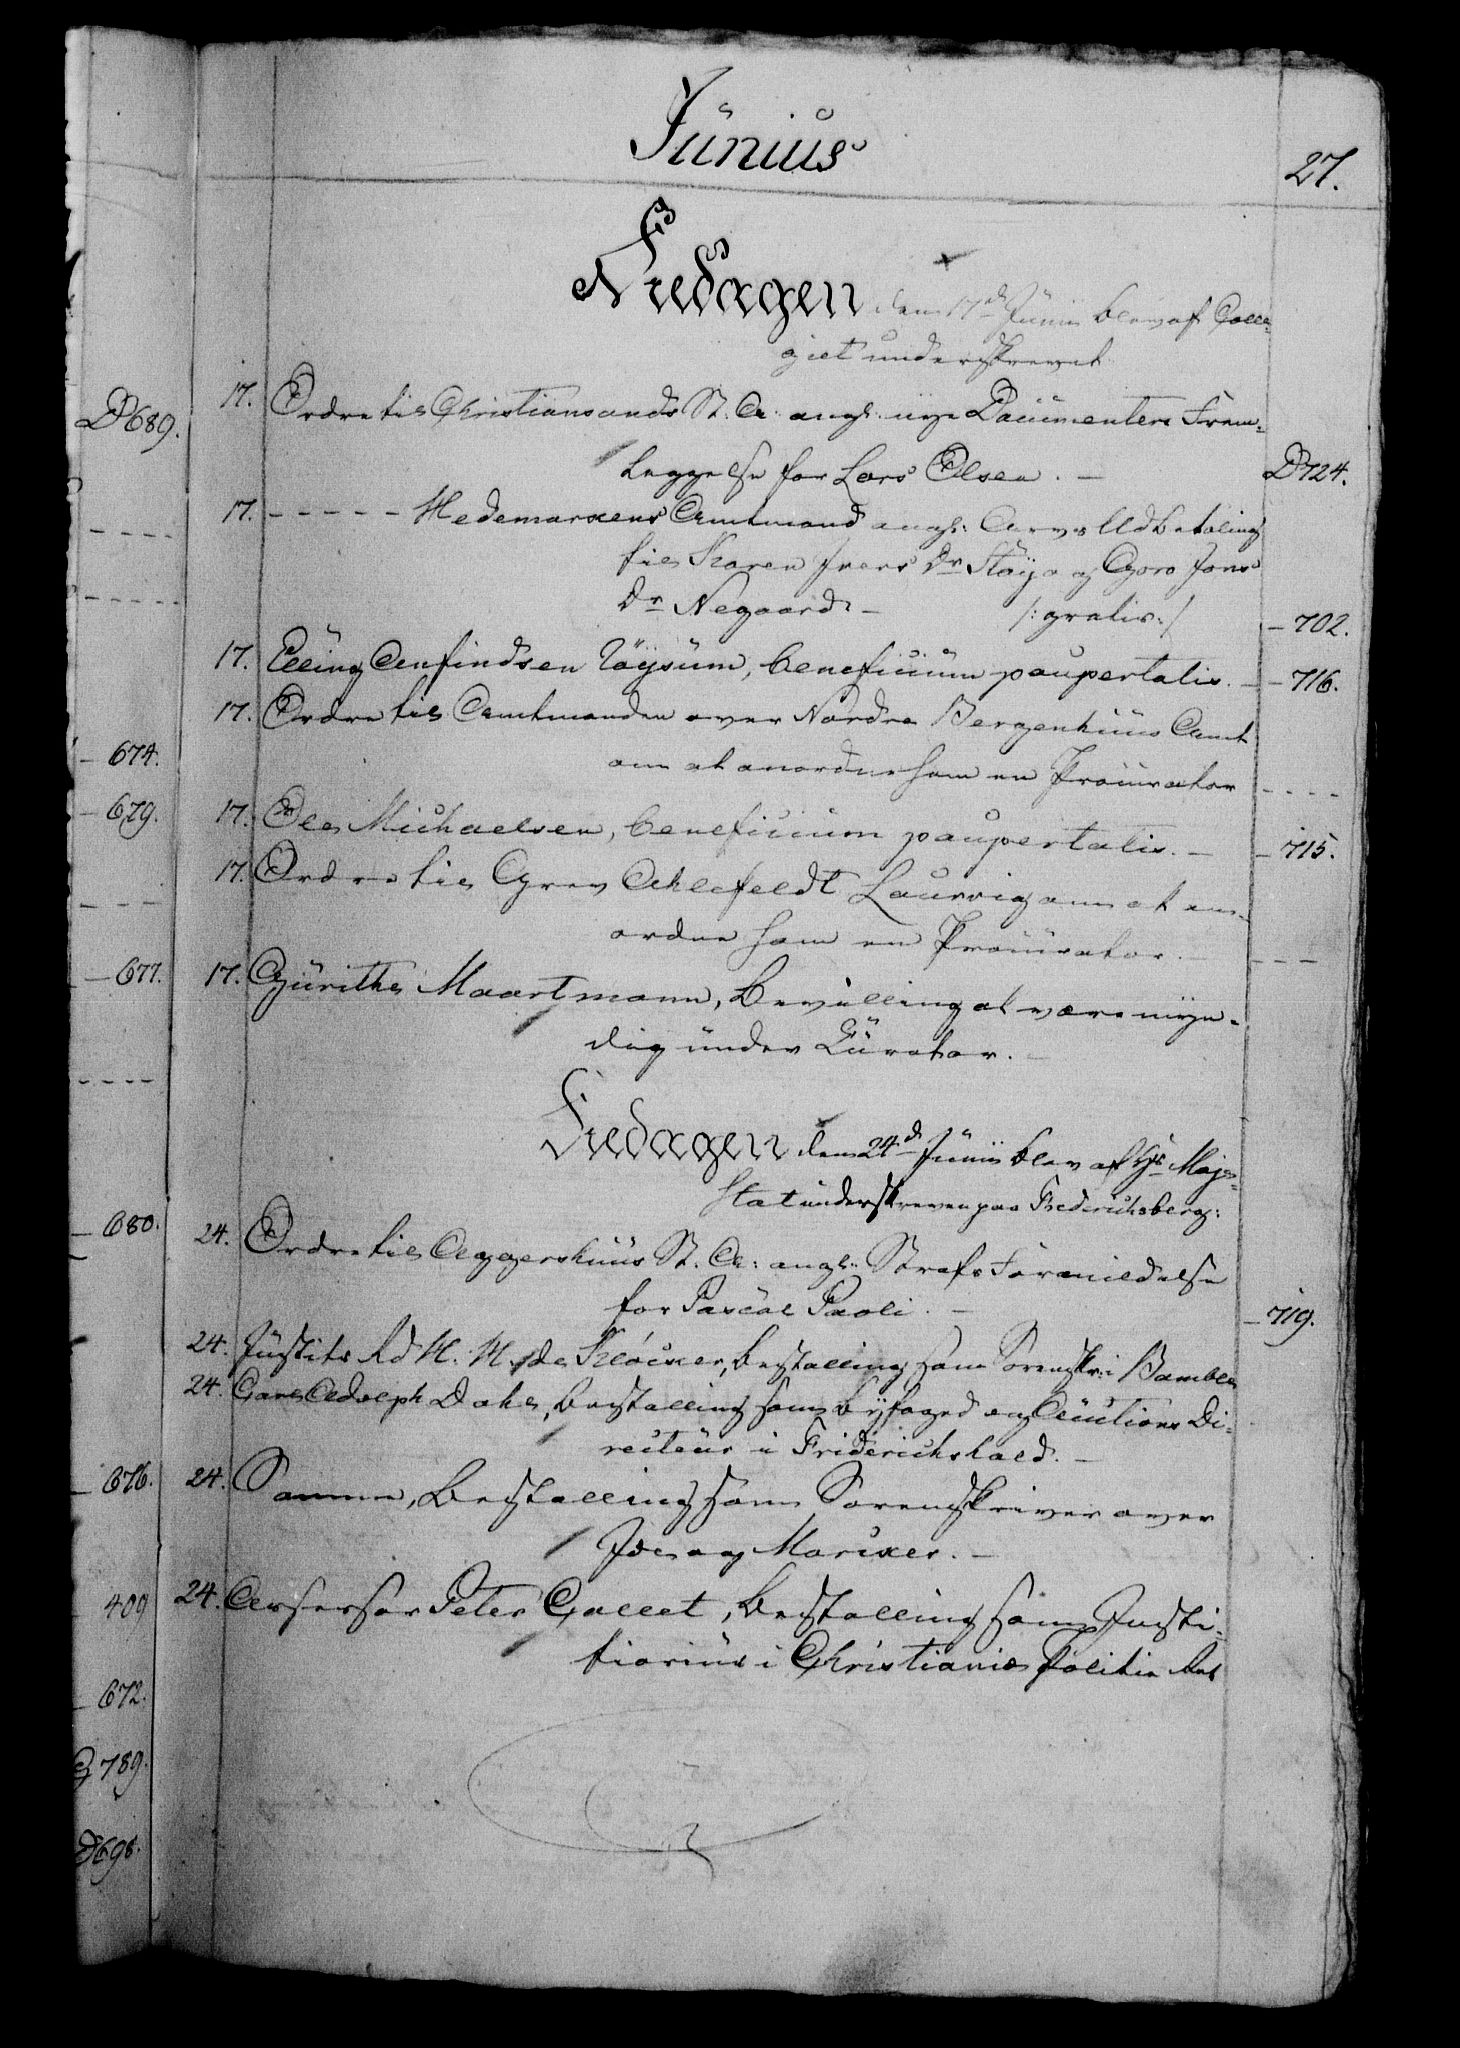 Junius
27.
Fredagen den 17de Junii blev af Colle-
giet underskrevet
D 689.
17. Ordre til Christiansands St. A: angl: nye Documenters Frem-
leggelse for Lars Olsen. — D 724.
17. - - - - - Hedemarkens Amtmand angl: Arvs Udbetaling
til Karen Ivers Dr. Støye og Goro Jons
Dr. Negaard — /: gratis :/ — 702.
17. Elling Anfindsen Røysum, beneficium paupertatis. — 716.
17. Ordre til Amtmanden over Nordre Bergenhuus Amt
674.
om at anordne ham en Procurator - - - -
679.
17. Ole Michaelsen, beneficium paupertatis. — 715.
17. Ordre til Grev Ahlefeldt Laurvig om at an-
ordne ham en Procurator. - - -
677.
17. Gurithe Maartmann, Bevilling at være myn-
dig under Curator.
Fredagen den 24de Junii blev af Hs Maje-
stat underskreven paa Frederichsberg:
680.
24. Ordre til Aggershuus St. A: angl: Strafs Formildelse
for Pascal Paoli. — 719.
24. Justits Rd H. H. de Klöcker, Bestalling som Sorenskr: i Bamble
24. Carl Adolph Dahl, Bestalling som Byfoged og Auctions Di-
recteur i Friderichshald. —
676.
24. Samme, Bestalling som Sorenskriver over
Ide og Marker. —
409
24. Assessor Peter Collet, Bestalling som Justi-
tiarius i Christianiæ Politie Ret
672.
G 789.
D 698.